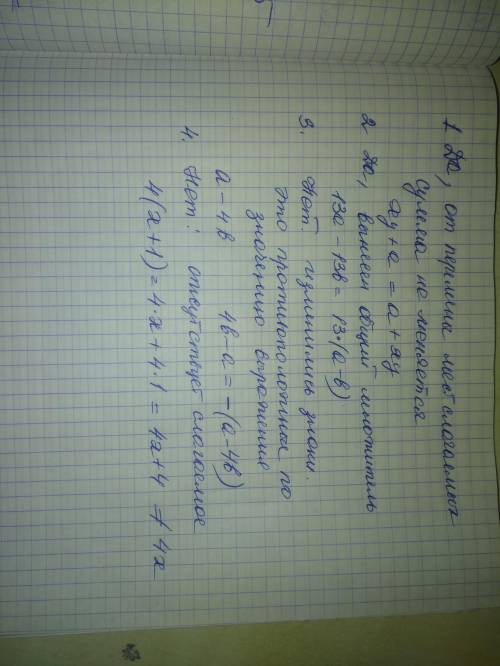 1 Да, от перемены мест слагаемых
сумма не меняется
xy + a = a + xy
2 Да, вынесен общий множитель
13a - 13b = 13·(a-b)
3. Нет изменились знаки.
Это противоположные по
значению выражения
a - 4b 4b - a = -(a-4b)
4. Нет: отсутствует слагаемое
4(x+1) = 4·x + 4·1 = 4x+4 ≠ 4x